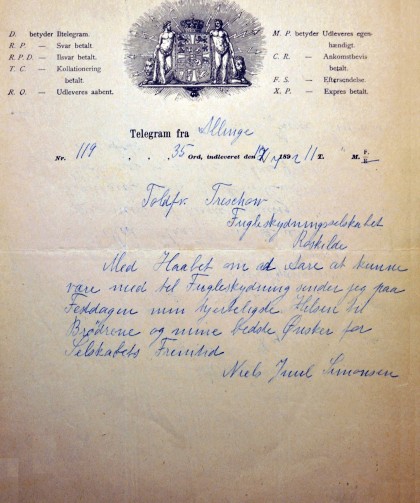 D. betyder Iltelegram.
R. P. — Svar betalt.
R. P. D. — Ilsvar betalt.
T. C. — Kollationering
betalt.
R. O. — Udleveres aabent.
M. P. betyder Udleveres egen-
hændigt.
C. R. — Ankomstbevis
betalt.
F. S. — Eftersendelse.
X. P. — Expres betalt.
Telegram fra Allinge
Nr. 119 35 Ord, indleveret den 189 11 T. M.
Toldfv. Treschow
Fugleskydningsselskabet
Roskilde
Med Haabet om ad Aare at kunne
være med til Fugleskydning sender jeg paa
Festdagen min hjerteligste Hilsen til
Brødrene og mine bedste Ønsker for
Selskabets Fremtid
Niels Juul Simonsen